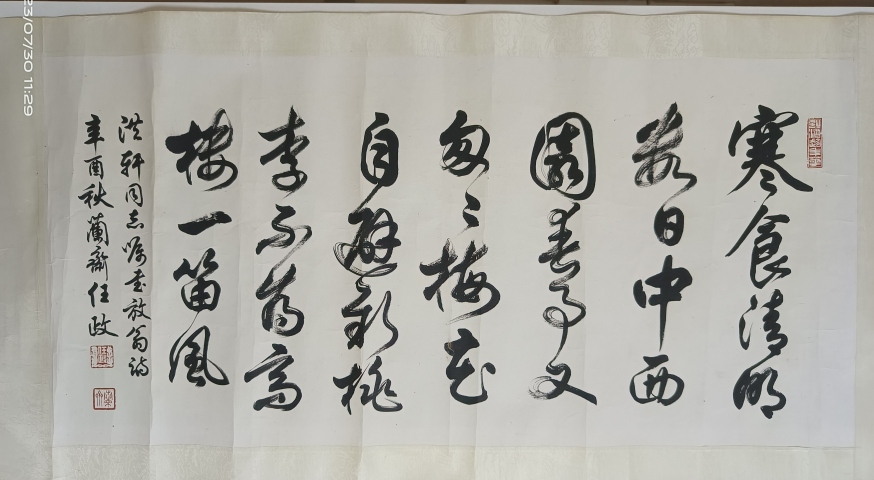 寒食清明
數日中西
園春事又
匆〻梅花
自避新桃
李不為高
樓一笛風
洪軒同志嘱書放翁詩
辛酉秋蘭齋任政
23/07/30 11:29